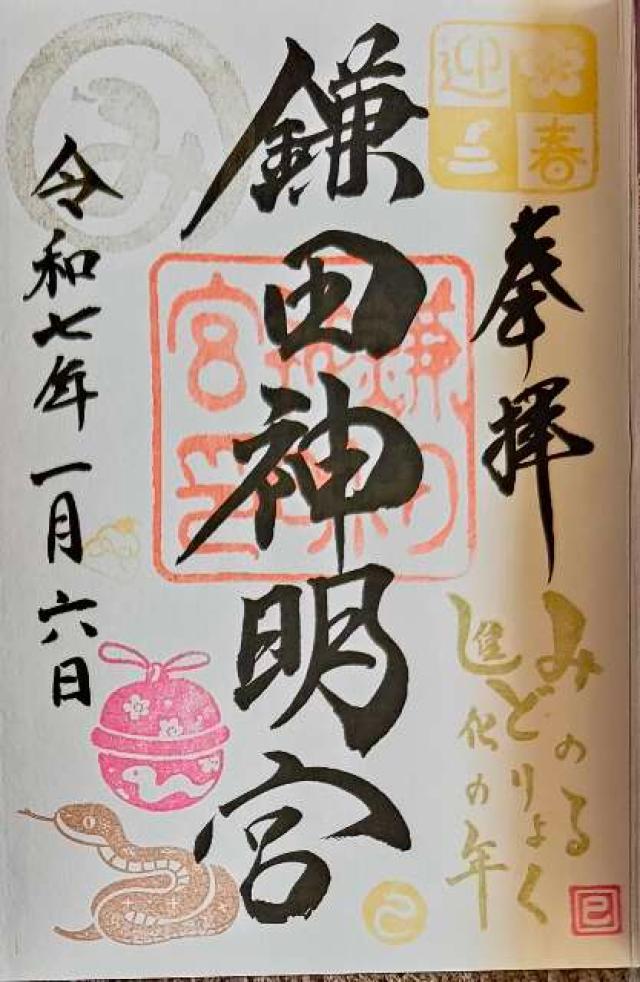 迎春
奉拝
みのる
どりょく
し進化の年
巳
鎌田神明宮
み
令和七年一月六日